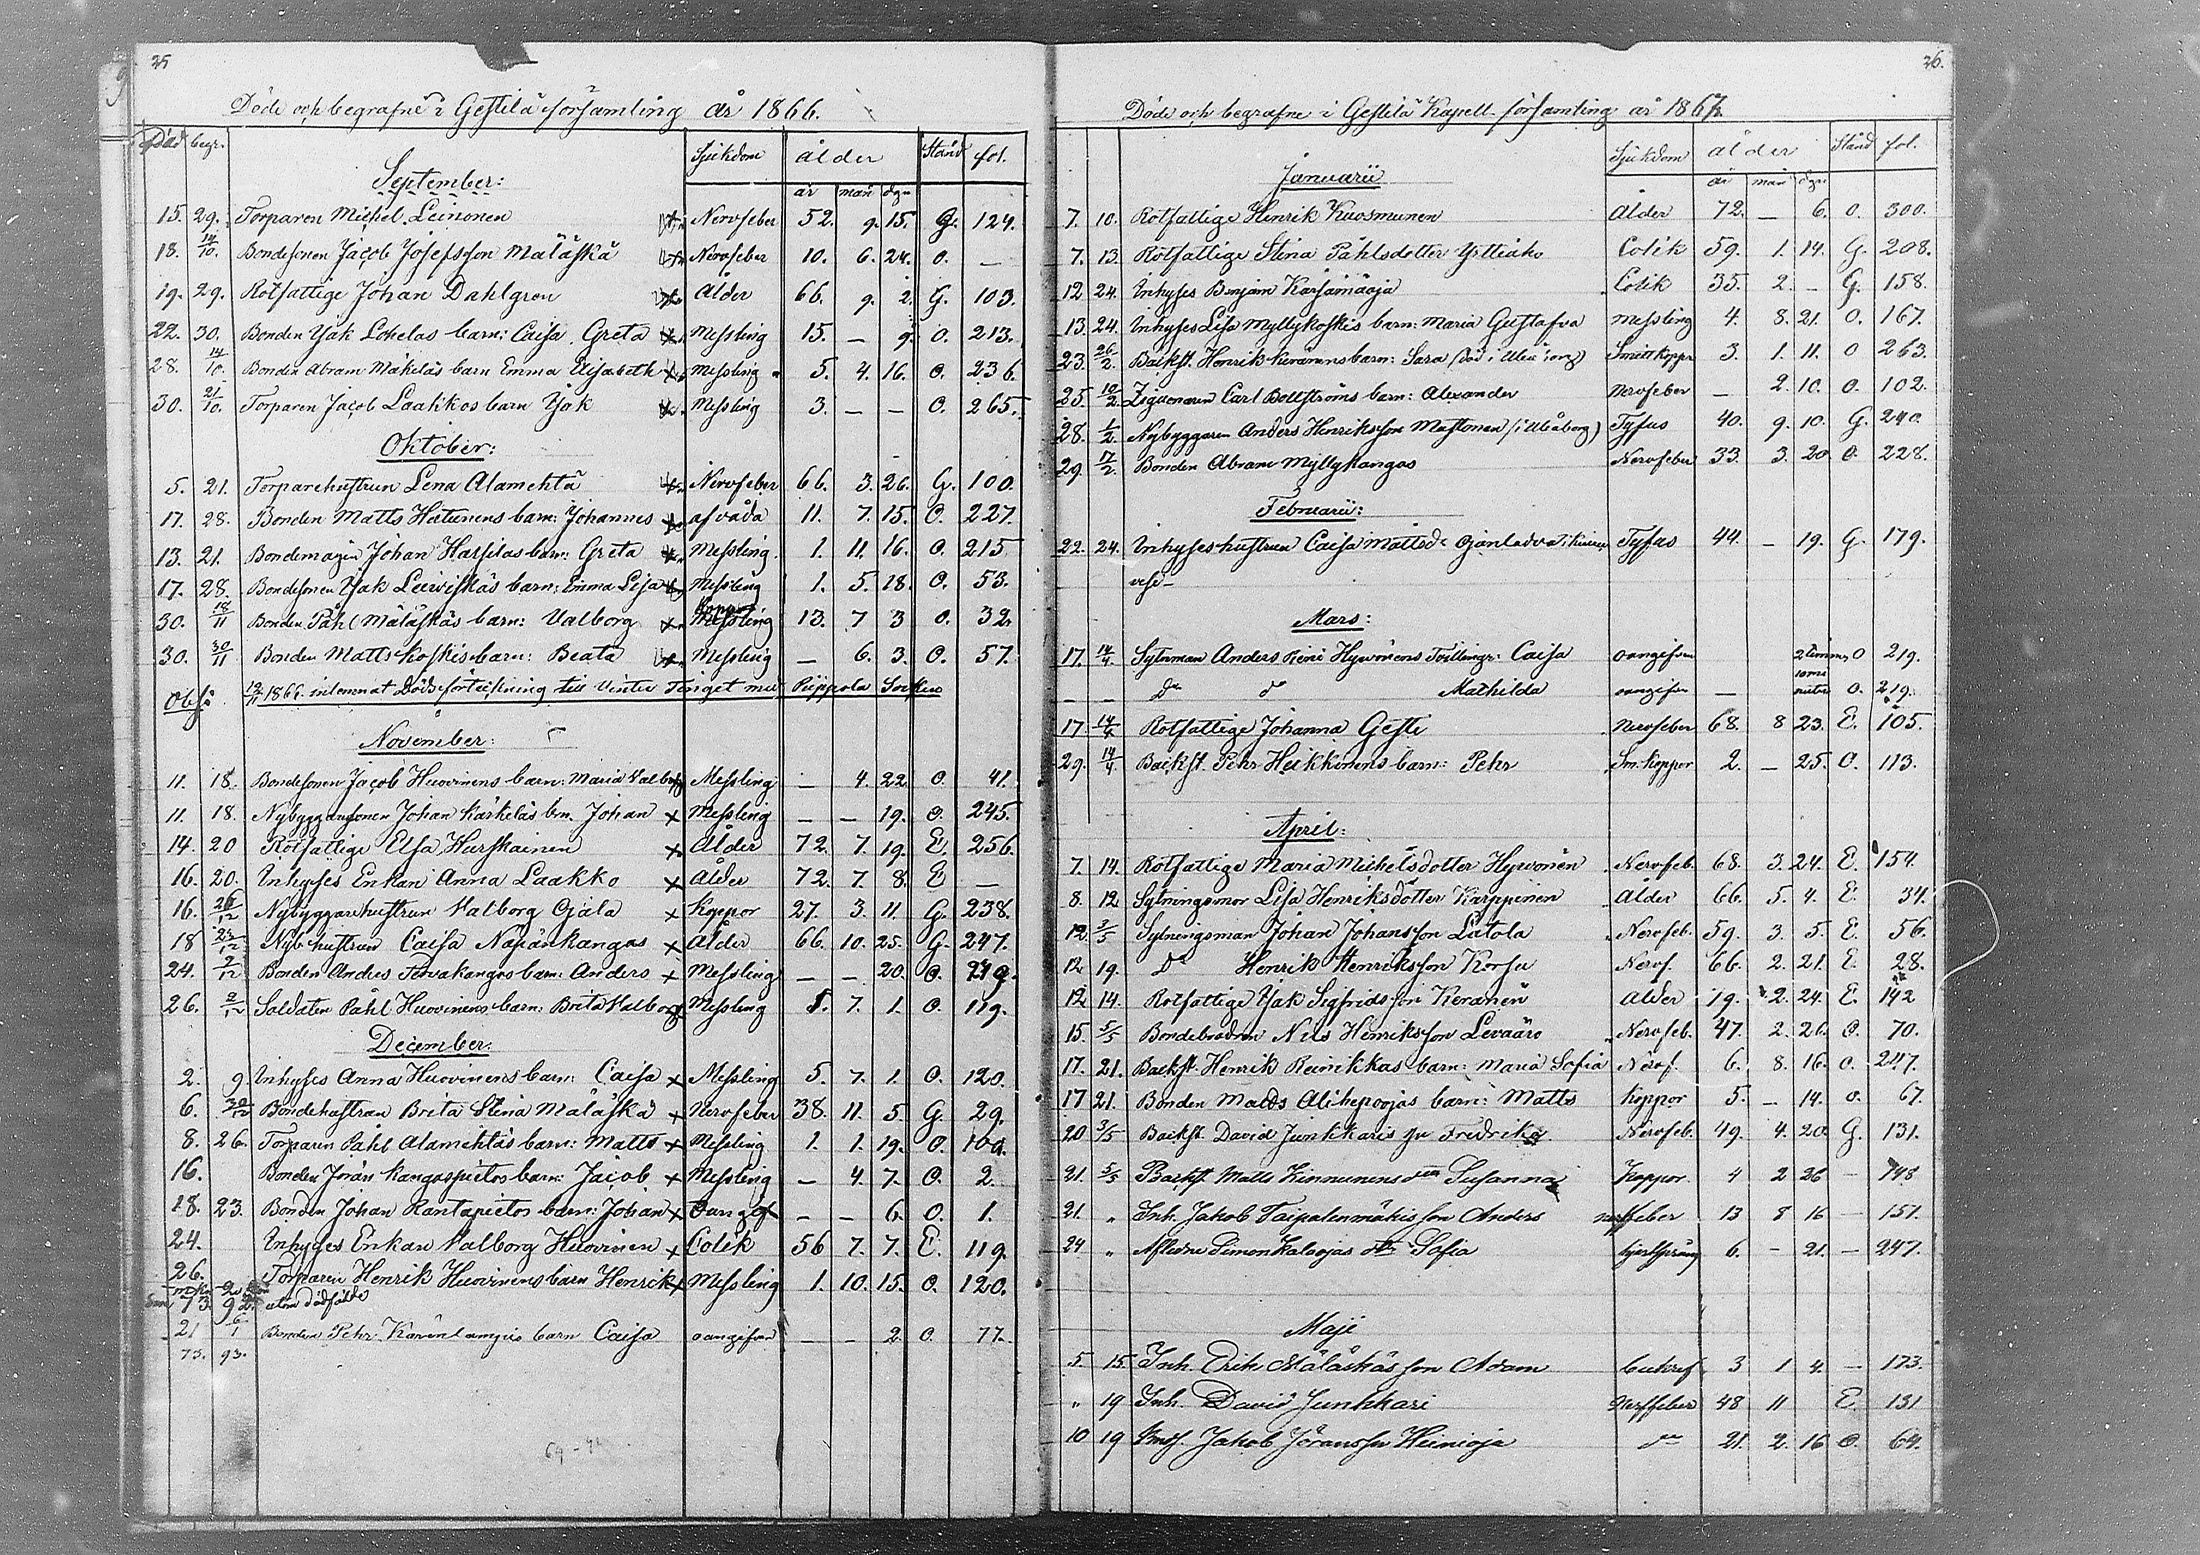 25
Döde och begrafne i Gestilä församling år 1866.
Död begr. Sjukdom ålder Stånd fol.
September: år mån dgr
15. 29. Torparen Michel Leinonen Nervfeber 52. 9. 15. G. 124.
18. 14/10. Bondesonen Jacob Josefsson Mäläskä Nervfeber 10. 6. 24. O. —
19. 29. Rotfattige Johan Dahlgren Ålder 66. 9. 2. G. 103.
22. 30. Bonden Isak Lokelas barn: Caisa Greta Messling 15. — 9. O. 213.
28. 14/10. Bonden Abram Mäkeläs barn Emma Elisabeth Messling 5. 4. 16. O. 236.
30. 21/10. Torparen Jacob Laakkos barn Isak Messling 3. — — O. 265.
Oktober:
5. 21. Torparehustrun Lena Alamehtä Nervfeber 66. 3. 26. G. 100.
17. 28. Bonden Matts Hutunens barn: Johannes af våda 11. 7. 15. O. 227.
13. 21. Bondemågen Johan Harjulas barn: Greta Messling. 1. 11. 16. O. 215
17. 28. Bondesonen Isak Leiviskäs barn: Emma Lisa Messling 1. 5. 18. O. 53.
30. 18/11 Bonden Påhl Mäläskäs barn: Valborg Koppor Messling 13. 7 3 O. 32.
30. 30/11 Bonden Matts Koskis barn: Beata Messling — 6. 3. O. 57.
Obs: 19/11 1866. inlemnat Dödsförteckning till Vinter Tinget med Piippola Socken
November:
11. 18. Bondesonen Jacob Huovinens barn: Maria Valborg Messling — 4. 22. O. 41.
11. 18. Nybyggaresonen Johan Kärkeläs brn. Johan Messling — — 19. O. 245.
14. 20 Rotfattige Elsa Hurskainen Ålder 72. 7. 19. E. 256.
16. 20. Inhyses Enkan Anna Laakko Ålder 72. 7. 8. E —
16. 26/12 Nybyggarehustrun Valborg Ojala Koppor 27. 3. 11. G. 238.
18 26/12 Nyb hustrun Caisa Napänkangas Ålder 66. 10. 25. G. 247.
24. 2/12 Bonden Andres Tervakangas barn: Anders Messling — — 20. O. 219.
26. 2/12 Soldaten Påhl Huovinens barn: Brita Valborg Messling 5. 7. 1. O. 119.
December:
2. 9. Inhyses Anna Huovinens barn: Caisa Messling 5. 7. 1. O. 120.
6. 30/12 Bondehustrun Brita Stina Mäläskä Nervfeber 38. 11. 5. G. 29.
8. 26. Torparen Påhl Alamehtäs barn: Matts Messling 1. 1. 19. O. 100.
16. Bonden Jöran Kangaspietos barn: Jacob Messling — 4. 7. O. 2.
18. 23. Bonden Johan Rantapietos barn: Johan Oangif — — 6. O. 1.
24. Inhyses Enkan Valborg Huovinen Colik 56 7. 7. E. 119.
26. Torparen Henrik Huovinens barn Henrik Messling 1. 10. 15. O. 120.
73. 92. utom dödfödde
21 6/1 Bonden Pehr Karinlampis barn Caisa oangifven — — 2. O. 77.
73. 93.
26.
Döde och begrafne i Gestilä Kapell församling år 1867.
Sjukdom ålder Stånd fol.
Januarii år mån dgr
7. 10. Rotfattige Henrik Kuosmunen Ålder 72. — 6. O. 300.
7. 13. Rotfattige Stina Påhlsdotter Ytteiko Colik 59. 1. 14. G. 208.
12 24. Inhyses Benjam Kärsämäoja Colik 35. 2. — G. 158.
13. 24. Inhyses Lisa Myllykoskis barn: Maria Gustafva Messling 4. 8. 21. O. 167.
23. 26/2. Backst. Henrik Keränens barn: Sara (död i Uleåborg) Smittkoppr 3. 1. 11. O 263.
25. 10/2. Ziguenaren Carl Bollströms barn: Alexander Nervfeber — 2. 10. O. 102.
28. 1/2. Nybyggaren Anders Henriksson Mustonen (i Uleåborg) Tyfus 40. 9. 10. G. 240.
29. 17/2. Bonden Abram Myllykangas Nervfeber 33. 3. 20 O. 228.
Februarii:
22. 24. Inhyseshustrun Caisa Mattsd. Ojanladva i Kiurujärvi Tyfus 44. — 19. G. 179.
Mars:
17. 14/4. Sytnman Anders Hyvönens Tvillingr: Caisa oangifven 2 timmar O 219.
— — Do do Mathilda oangifven — O. 219.
17 14/4 Rotfattige Johanna Gesti Nervfeber 68. 8 23. E. 105.
29. 14/4. Backst. Pehr Heikkinens barn: Pehr Sm. koppor 2. — 25. O. 113.
April:
7. 14. Rotfattige Maria Michelsdotter Hyvönen Nervfeb. 68. 3. 24. E. 154.
8. 12 Sytningsmor Lisa Henriksdotter Karppinen Ålder 66. 5. 4. E. 34.
12. 3/5 Sytningsman Johan Johansson Latola Nervfeb. 59. 3. 5. E. 56.
12 19. Do Henrik Henriksson Korsu Nervf. 66. 2. 21. E. 28.
12 14. Rotfattige Isak Sigfridsson Keränen Ålder 19. 2. 24. E. 142
15. 5/5 Bondebrodren Nils Henriksson Levääro Nervfeb. 47. 2. 26. O. 70.
17. 21. Backst. Henrik Reinikkas barn: Maria Sofia Nervf. 6. 8. 16. O. 247.
17 21. Bonden Matts Alihepoojas barn: Matts Koppor 5. — 14. O. 67.
20 3/5 Backst. David Junkkaris hu Fredrika Nervfeb. 49. 4. 20. G. 131.
21. 5/5 Backst. Matts Kinnunens dtr Susanna Koppor 4 2 26 — 148
21. " Inh. Jakob Taipalenmäkis son Anders nerffeber 13 8 16 — 151.
24 " Afledne Simon Kalaojas dtr Sofia hjertsprång 6. — 21. — 247.
Maji
5. 15. Inh. Erik Mäläskäs son Adam 3 1 4. — 173.
" 19 Inh. David Junkkari Nerffeber 48 11 E. 131
10 19 Jakob Jöransson Heinioja do 21. 2. 16 O. 64.